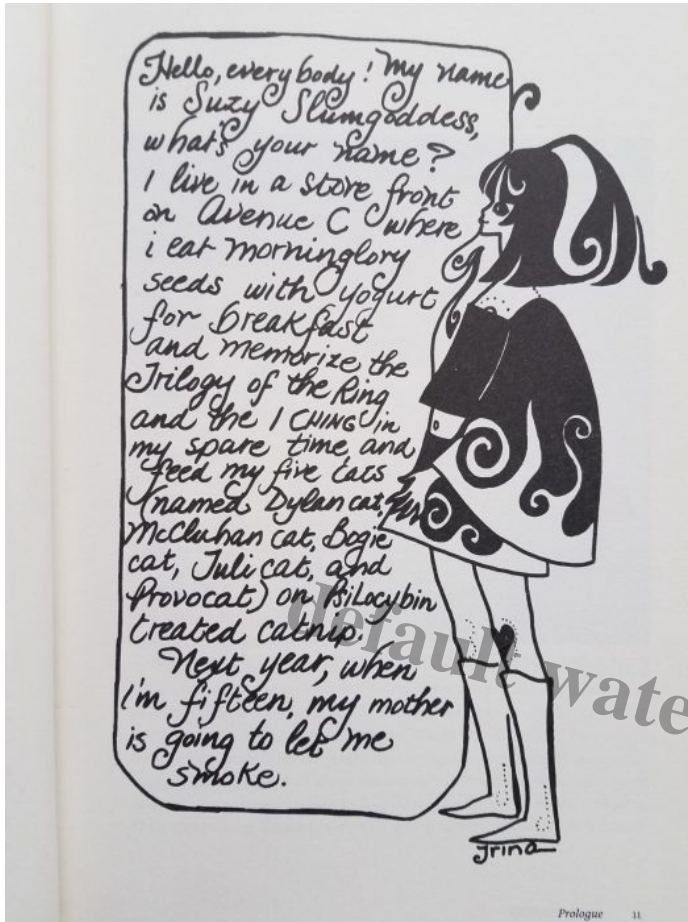 Hello, everybody! My name
is Suzy Slumgoddess,
what's your name?
I live in a store front
on Avenue C where
i eat morninglory
seeds with yogurt
for breakfast
and memorize the
Trilogy of the Ring
and the I CHING in
my spare time, and
feed my five cats
(named Dylan cat,
McCluhan cat, Bogie
cat, Juli cat, and
Provocat) on Psilocybin
treated catnip.
Next year, when
I'm fifteen, my mother
is going to let me
smoke.
Irina
default wate
Prologue 11